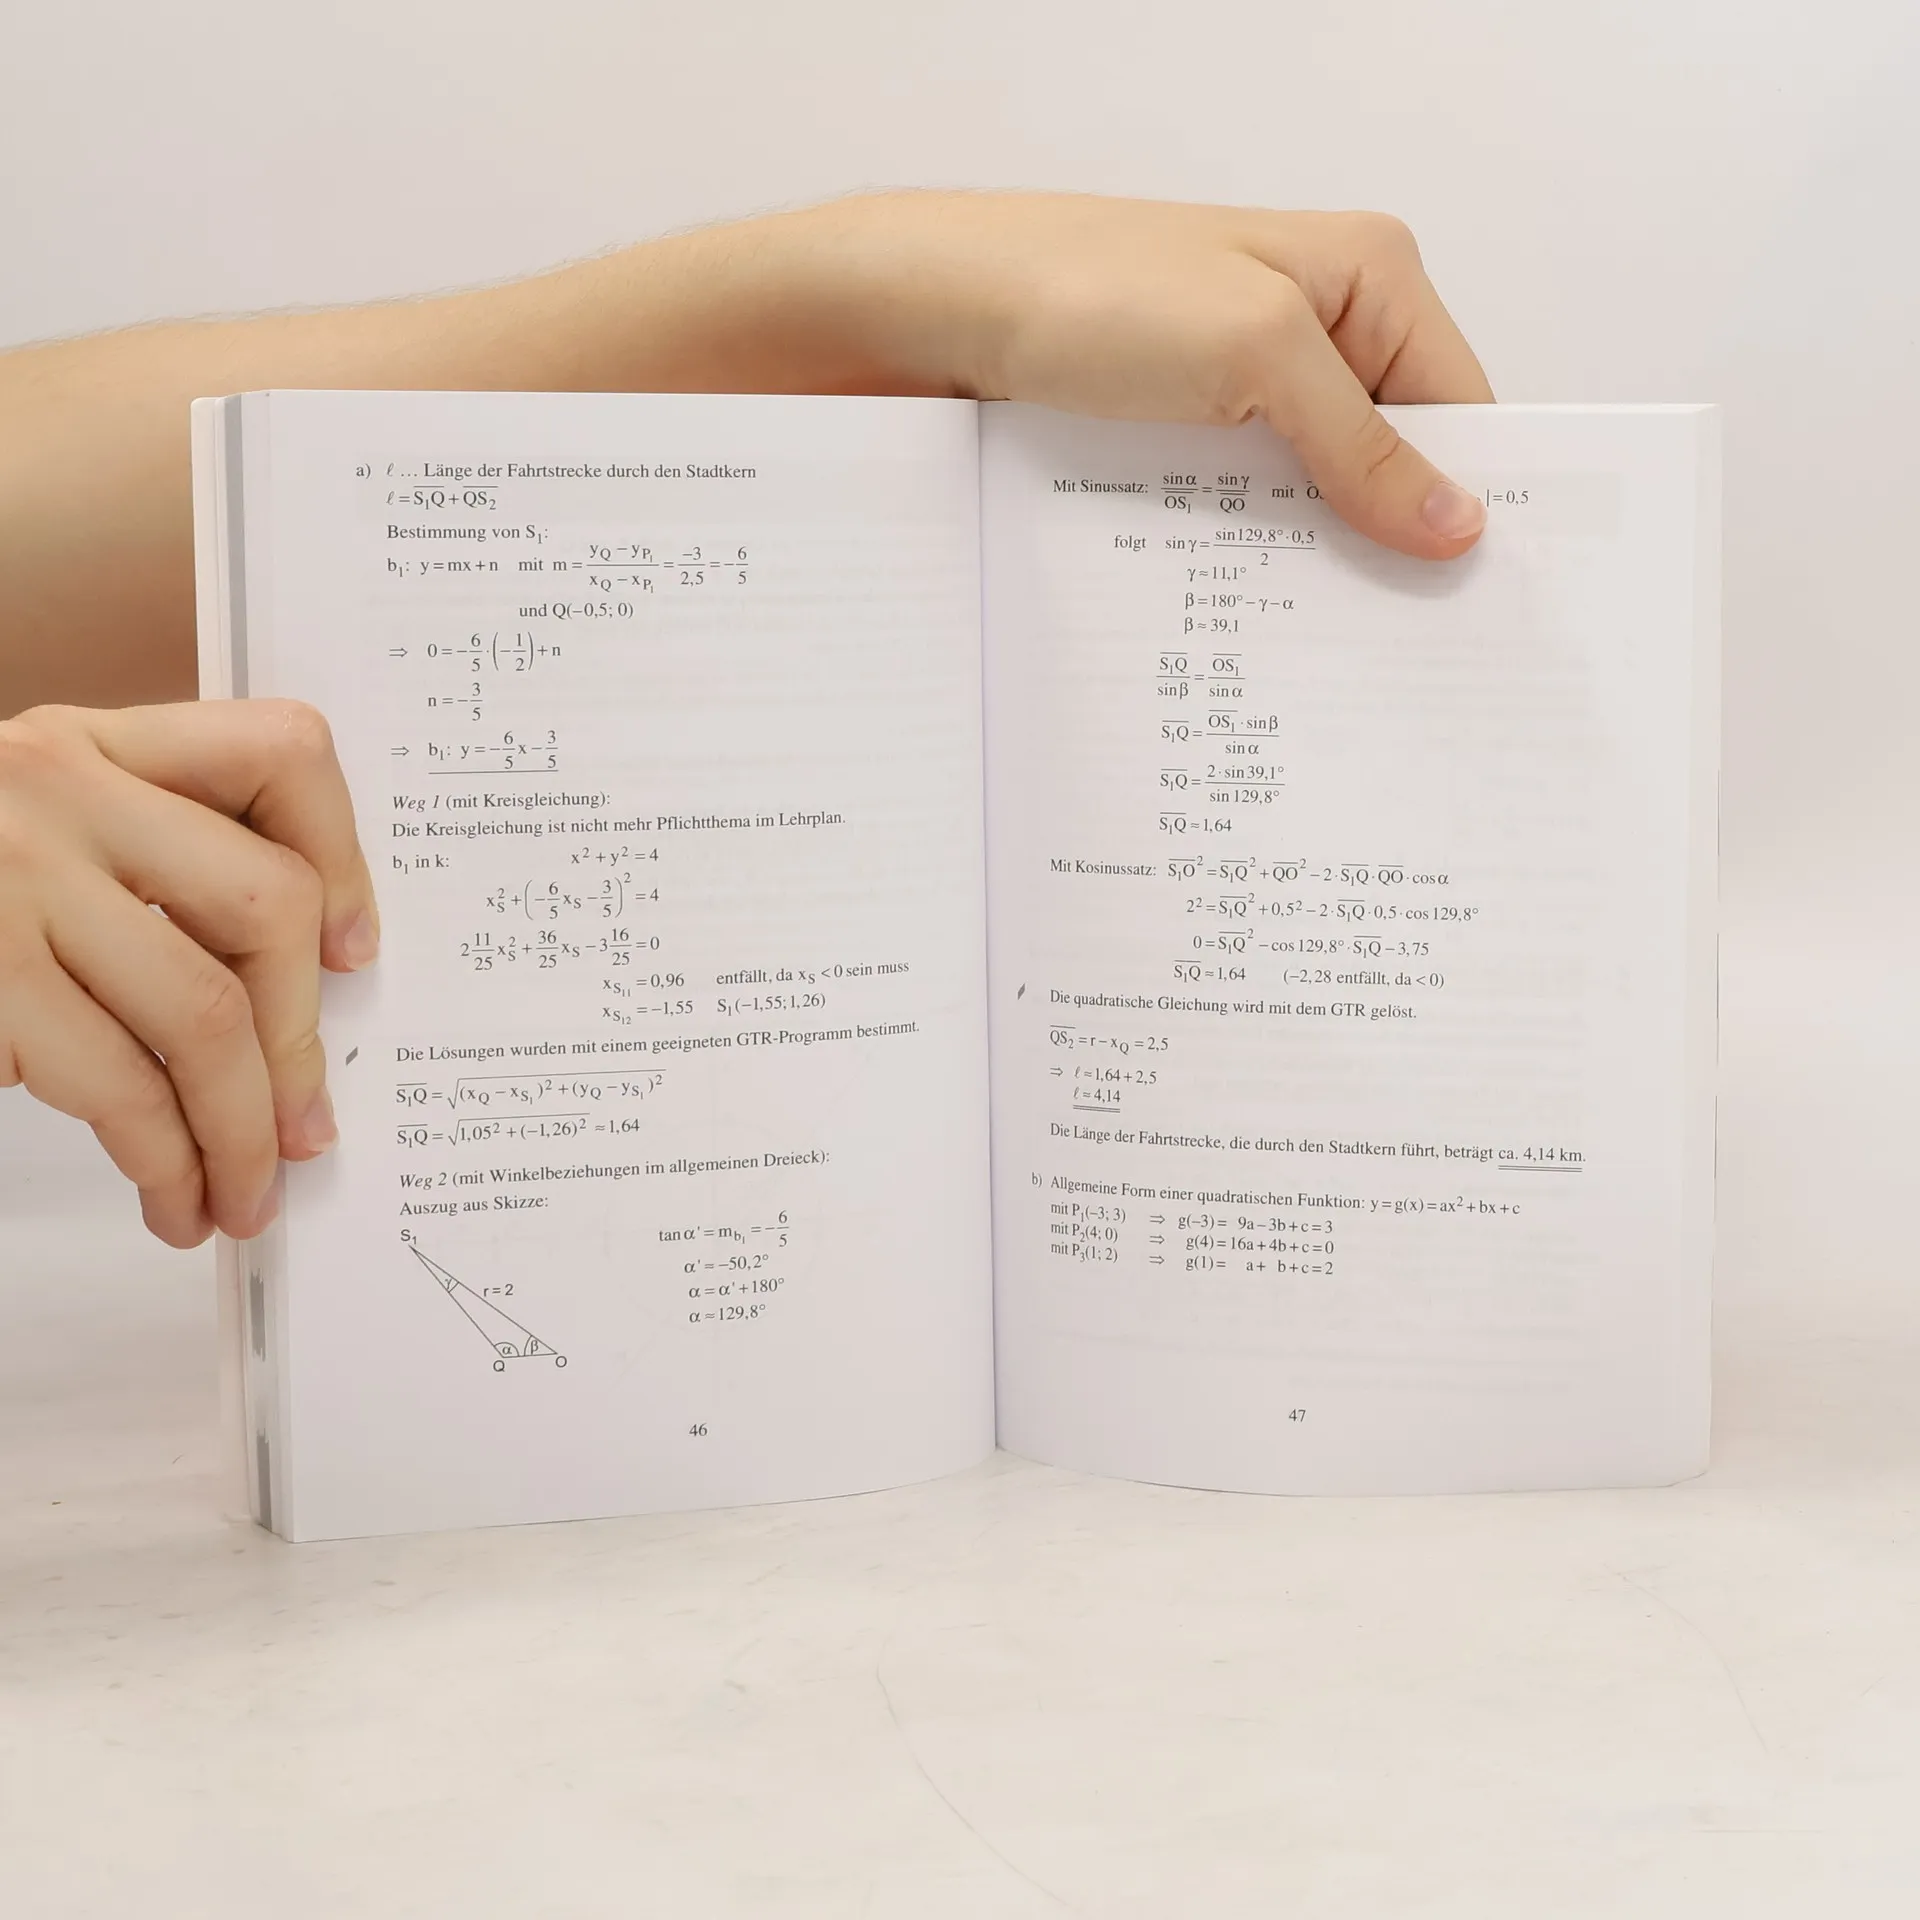 a) ℓ … Länge der Fahrtstrecke durch den Stadtkern
ℓ = S₁Q + QS₂
Bestimmung von S₁:
b₁: y = mx + n mit m = (y_Q − y_P₁)/(x_Q − x_P₁) = −3/2,5 = −6/5
und Q(−0,5; 0)
⇒ 0 = −6/5 · (−1/2) + n
n = −3/5
⇒ b₁: y = −6/5 x − 3/5
Weg 1 (mit Kreisgleichung):
Die Kreisgleichung ist nicht mehr Pflichtthema im Lehrplan.
b₁ in k: x² + y² = 4
x_S² + (−6/5 x_S − 3/5)² = 4
2 11/25 x_S² + 36/25 x_S − 3 16/25 = 0
x_S₁₁ = 0,96 entfällt, da x_S < 0 sein muss
x_S₁₂ = −1,55 S₁(−1,55; 1,26)
Die Lösungen wurden mit einem geeigneten GTR-Programm bestimmt.
S₁Q = √((x_Q − x_S₁)² + (y_Q − y_S₁)²)
S₁Q = √(1,05² + (−1,26)²) ≈ 1,64
Weg 2 (mit Winkelbeziehungen im allgemeinen Dreieck):
Auszug aus Skizze:
S₁
γ
r = 2
α β
Q O
tan α' = m_b₁ = −6/5
α' = −50,2°
α = α' + 180°
α ≈ 129,8°
46
Mit Sinussatz: sin α/OS₁ = sin γ/QO mit
| = 0,5
folgt sin γ = sin 129,8° · 0,5/2
γ ≈ 11,1°
β = 180° − γ − α
β ≈ 39,1
S₁Q/sin β = OS₁/sin α
S₁Q = OS₁ · sin β/sin α
S₁Q = 2 · sin 39,1°/sin 129,8°
S₁Q ≈ 1,64
Mit Kosinussatz: S₁O² = S₁Q² + QO² − 2 · S₁Q · QO · cos α
2² = S₁Q² + 0,5² − 2 · S₁Q · 0,5 · cos 129,8°
0 = S₁Q² − cos 129,8° · S₁Q − 3,75
S₁Q ≈ 1,64 (−2,28 entfällt, da < 0)
Die quadratische Gleichung wird mit dem GTR gelöst.
QS₂ = r − x_Q = 2,5
⇒ ℓ ≈ 1,64 + 2,5
ℓ ≈ 4,14
Die Länge der Fahrtstrecke, die durch den Stadtkern führt, beträgt ca. 4,14 km.
b) Allgemeine Form einer quadratischen Funktion: y = g(x) = ax² + bx + c
mit P₁(−3; 3) ⇒ g(−3) = 9a − 3b + c = 3
mit P₂(4; 0) ⇒ g(4) = 16a + 4b + c = 0
mit P₃(1; 2) ⇒ g(1) = a + b + c = 2
47